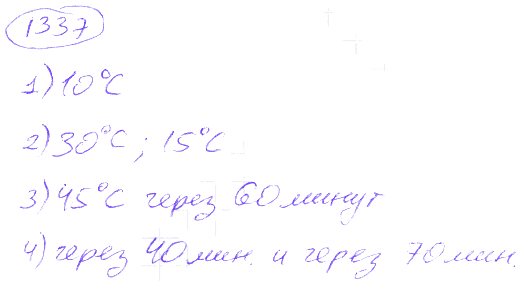 1337
1) 10°C
2) 30°C ; 15°C
3) 45°C через 60 минут
4) через 40 мин. и через 70 мин.